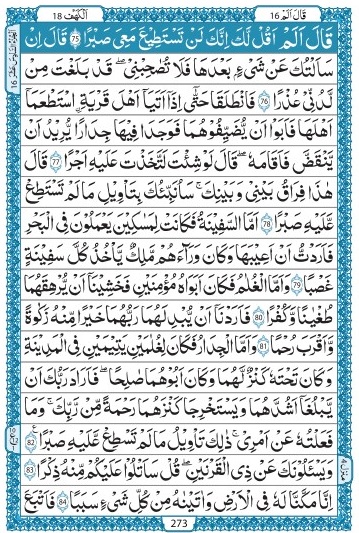 قَالَ اَلَمْ 16
اَلْكَهْف 18
قَالَ اَلَمْ اَقُلْ لَّكَ اِنَّكَ لَنْ تَسْتَطِيْعَ مَعِيَ صَبْرًا ﴿75﴾ قَالَ اِنْ
سَاَلْتُكَ عَنْ شَيْءٍۭ بَعْدَهَا فَلَا تُصٰحِبْنِيْ ۚ قَدْ بَلَغْتَ مِنْ
لَّدُنِّيْ عُذْرًا ﴿76﴾ فَانْطَلَقَا حَتّٰٓى اِذَآ اَتَيَآ اَهْلَ قَرْيَةِۨ اسْتَطْعَمَآ
اَهْلَهَا فَاَبَوْا اَنْ يُّضَيِّفُوْهُمَا فَوَجَدَا فِيْهَا جِدَارًا يُّرِيْدُ اَنْ
يَّنْقَضَّ فَاَقَامَهٗ ؕ قَالَ لَوْ شِئْتَ لَتَّخَذْتَ عَلَيْهِ اَجْرًا ﴿77﴾ قَالَ
هٰذَا فِرَاقُ بَيْنِيْ وَبَيْنِكَ ۚ سَاُنَبِّئُكَ بِتَاْوِيْلِ مَا لَمْ تَسْتَطِعْ
عَّلَيْهِ صَبْرًا ﴿78﴾ اَمَّا السَّفِيْنَةُ فَكَانَتْ لِمَسٰكِيْنَ يَعْمَلُوْنَ فِي الْبَحْرِ
فَاَرَدْتُّ اَنْ اَعِيْبَهَا وَكَانَ وَرَآءَهُمْ مَّلِكٌ يَّاْخُذُ كُلَّ سَفِيْنَةٍ
غَصْبًا ﴿79﴾ وَاَمَّا الْغُلٰمُ فَكَانَ اَبَوٰهُ مُؤْمِنَيْنِ فَخَشِيْنَآ اَنْ يُّرْهِقَهُمَا
طُغْيَانًا وَّكُفْرًا ﴿80﴾ فَاَرَدْنَآ اَنْ يُّبْدِلَهُمَا رَبُّهُمَا خَيْرًا مِّنْهُ زَكٰوةً
وَّاَقْرَبَ رُحْمًا ﴿81﴾ وَاَمَّا الْجِدَارُ فَكَانَ لِغُلٰمَيْنِ يَتِيْمَيْنِ فِي الْمَدِيْنَةِ
وَكَانَ تَحْتَهٗ كَنْزٌ لَّهُمَا وَكَانَ اَبُوْهُمَا صَالِحًا ۚ فَاَرَادَ رَبُّكَ اَنْ
يَّبْلُغَآ اَشُدَّهُمَا وَيَسْتَخْرِجَا كَنْزَهُمَا رَحْمَةً مِّنْ رَّبِّكَ ۚ وَمَا
فَعَلْتُهٗ عَنْ اَمْرِيْ ؕ ذٰلِكَ تَاْوِيْلُ مَا لَمْ تَسْطِعْ عَّلَيْهِ صَبْرًا ﴿82﴾
وَيَسْـَٔلُوْنَكَ عَنْ ذِي الْقَرْنَيْنِ ؕ قُلْ سَاَتْلُوْا عَلَيْكُمْ مِّنْهُ ذِكْرًا ﴿83﴾
اِنَّا مَكَّنَّا لَهٗ فِي الْاَرْضِ وَاٰتَيْنٰهُ مِنْ كُلِّ شَيْءٍ سَبَبًا ﴿84﴾ فَاَتْبَعَ
273